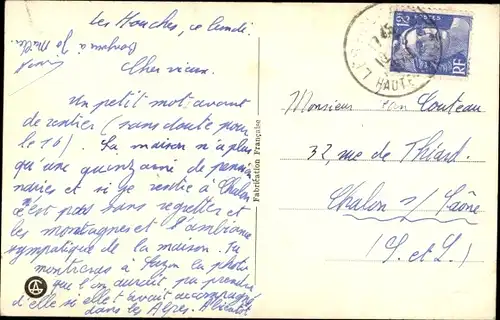 Les Houches, ce lundi.
Bonjour à
Cher vieux.
Un petit mot avant
de rentrer (sans doute pour
le 16). La maison n'a plus
qu'une quinzaine de pension
naires et si je rentre à Chalon
c'est pas sans regretter et
les montagnes et l'ambiance
sympatique de la maison. Tu
montreras à la photo
que l'on aurait pu prendre
d'elle si elle avait accompagné
dans les Alpes. A bientôt
Fabrication Française
Monsieur Jean Couteau
32, rue de Thiard.
Chalon s/ Saône
(S. et L.)
POSTES
RF
HAUTE